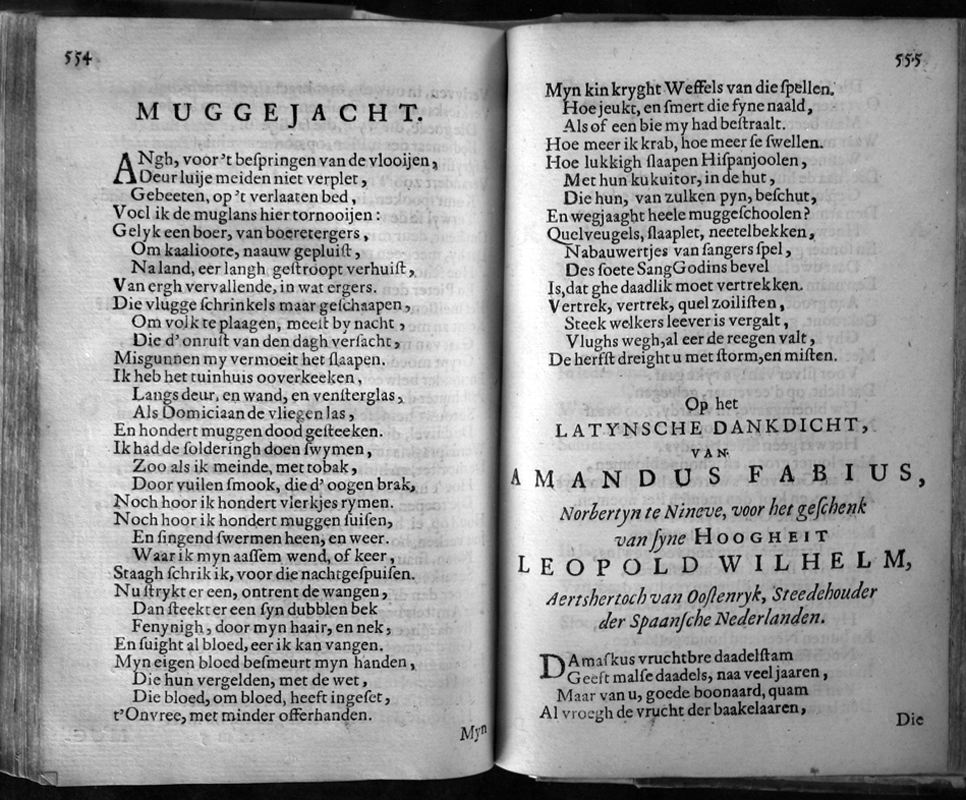 554
MUGGEJACHT.
ANgh, voor 't beſpringen van de vlooijen,
Deur luije meiden niet verplet,
Gebeeten, op 't verlaaten bed,
Voel ik de muglans hier tornooijen:
Gelyk een boer, van boeretergers,
Om kaalioote, naauw gepluiſt,
Na land, eer langh geſtroopt verhuiſt,
Van ergh vervallende, in wat ergers.
Die vlugge ſchrinkels maar geſchaapen,
Om volk te plaagen, meeſt by nacht,
Die d'onruſt van den dagh verſacht,
Misgunnen my vermoeit het ſlaapen.
Ik heb het tuinhuis ooverkeeken,
Langs deur, en wand, en venſterglas,
Als Domiciaan de vliegen las,
En hondert muggen dood geſteeken.
Ik had de ſolderingh doen ſwymen,
Zoo als ik meinde, met tobak,
Door vuilen ſmook, die d'oogen brak,
Noch hoor ik hondert vlerkjes rymen.
Noch hoor ik hondert muggen ſuiſen,
En ſingend ſwermen heen, en weer.
Waar ik myn aaſſem wend, of keer,
Staagh ſchrik ik, voor die nachtgeſpuiſen.
Nu ſtrykt er een, ontrent de wangen,
Dan ſteekt er een ſyn dubblen bek
Fenynigh, door myn haair, en nek,
En ſuight al bloed, eer ik kan vangen.
Myn eigen bloed beſmeurt myn handen,
Die hun vergelden, met de wet,
Die bloed, om bloed, heeft ingeſet,
t'Onvree, met minder offerhanden.
Myn
555
Myn kin kryght Weſſels van die ſpellen.
Hoe jeukt, en ſmert die fyne naald,
Als of een bie my had beſtraalt.
Hoe meer ik krab, hoe meer ſe ſwellen.
Hoe lukkigh ſlaapen Hiſpanjoolen,
Met hun kukuitor, in de hut,
Die hun, van zulken pyn, beſchut,
En wegjaaght heele muggeſchoolen?
Quelveugels, ſlaaplet, neetelbekken,
Nabauwertjes van ſangers ſpel,
Des ſoete SangGodins bevel
Is, dat ghe daadlik moet vertrekken.
Vertrek, vertrek, quel zoiliſten,
Steek welkers leever is vergalt,
Vlughs wegh, al eer de reegen valt,
De herfſt dreight u met ſtorm, en miſten.
Op het
LATYNSCHE DANKDICHT,
VAN
AMANDUS FABIUS,
Norbertyn te Nineve, voor het geſchenk
van ſyne HOOGHEIT
LEOPOLD WILHELM,
Aertshertoch van Ooſtenryk, Steedehouder
der Spaanſche Nederlanden.
DAmaſkus vruchtbre daadelſtam
Geeft malſe daadels, naa veel jaaren,
Maar van u, goede boonaard, quam
Al vroegh de vrucht der baakelaaren,
Die